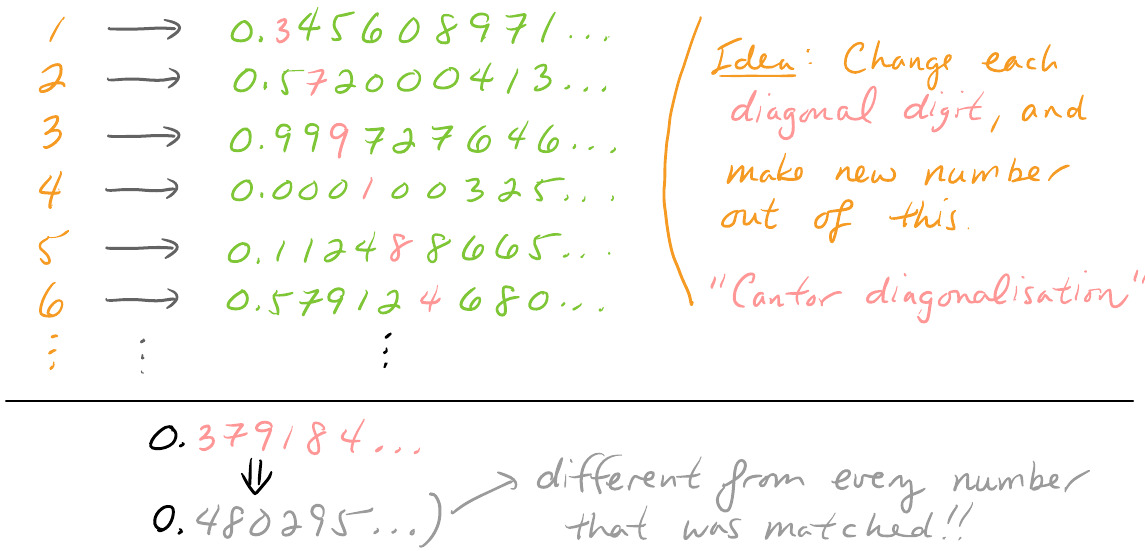 1 → 0.345608971...
2 → 0.572000413...
3 → 0.999727646...
4 → 0.000100325...
5 → 0.112488665...
6 → 0.579124680...
⋮ ⋮ ⋮
Idea: Change each
diagonal digit, and
make new number
out of this.
"Cantor diagonalisation"
0.379184...
⇓
0.480295...) → different from every number
that was matched!!